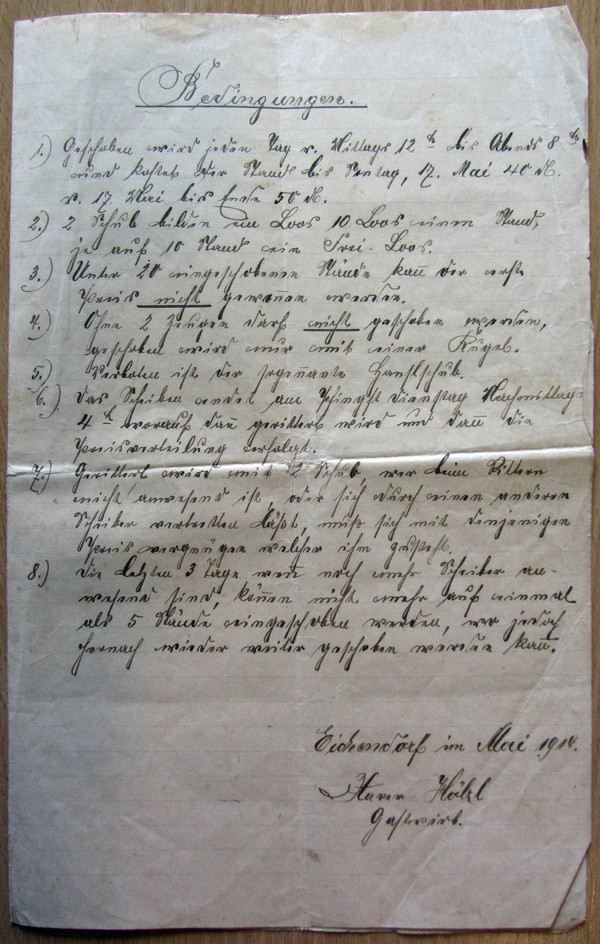 Bedingungen.
1.) Geschoben wird jeden Tag v. Mittags 12 h bis Abends 8 h
und kostet der Stand bis Sontag, 17. Mai 40 ₰.
v. 17. Mai bis Ende 50 ₰.
2.) 2 Schub bilden ein Loos 10 Loos einen Stand,
je auf 10 Stand ein Frei-Loos.
3.) Unter 20 eingeschobenen Stände kañ der erste
Preis nicht gewoñen werden.
4.) Ohne 2 Zeugen darf nicht geschoben werden,
geschoben wird nur mit einer Kugel.
5.) Verboten ist der sogenañte Hanslschub.
6.) Das Scheiben endet am Pfingst Dienstag Nachmittag
4 h worauf dañ gerittert wird und dañ die
Preisverteilung erfolgt.
7.) Gerittert wird mit 2 Schub, wer beim Rittern
nicht anwesend ist, oder sich durch einen anderen
Scheiber vertretten läßt, muß sich mit denjenigen
Preis vergnügen welcher ihm zusteht.
8.) Die letzten 3 Tage weñ noch mehr Scheiber an-
wesend sind, köñen nicht mehr auf einmal
als 5 Stände eingeschoben werden, wo jedoch
hernach wieder weiter geschoben werden kañ.
Eichendorf im Mai 1914.
Xaver Hölzl
Gastwirt.